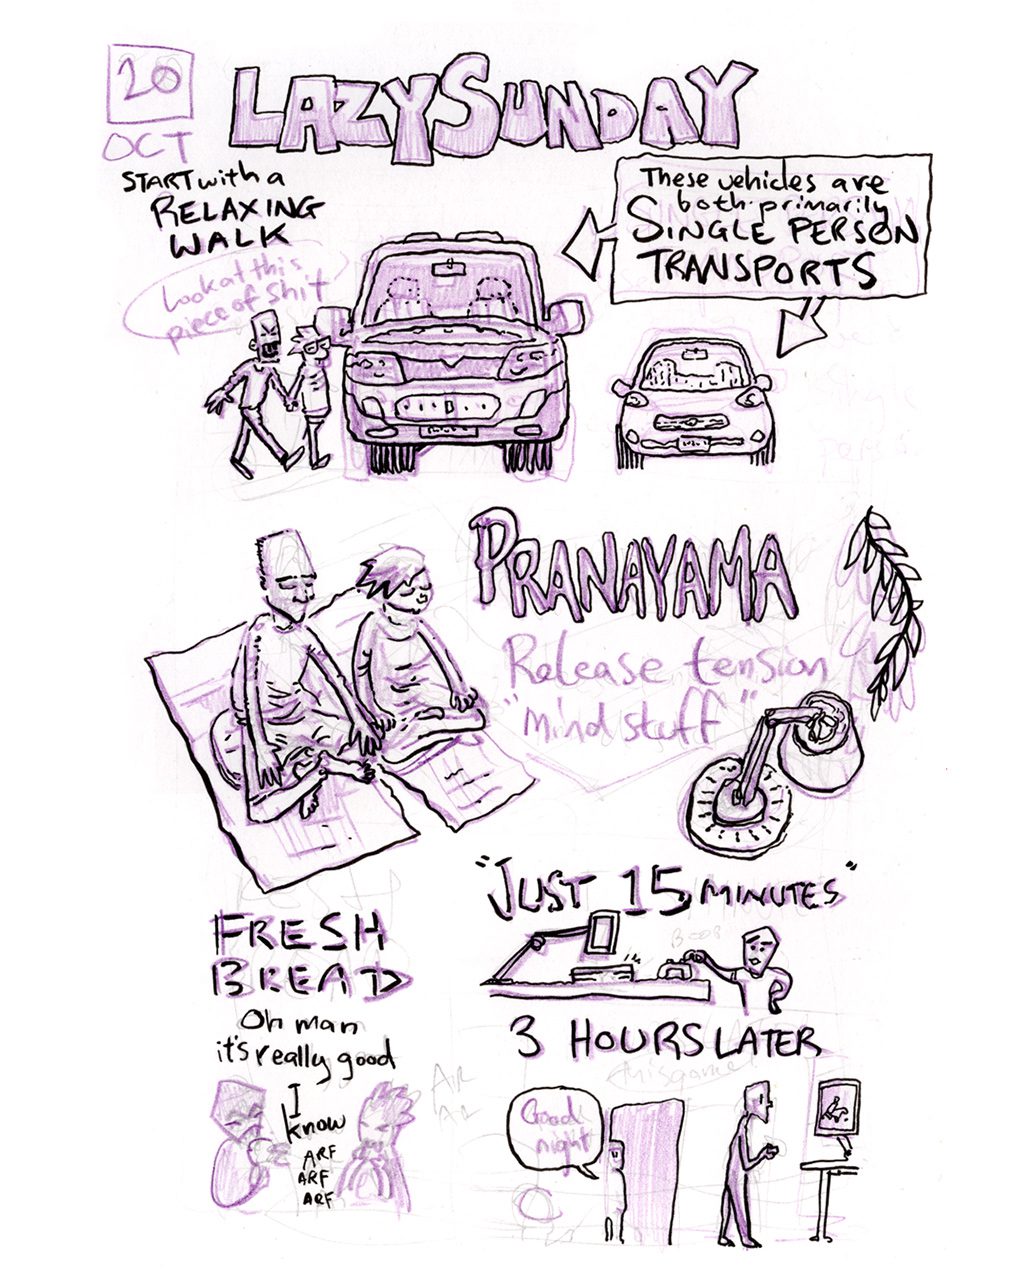 20
OCT
LAZY SUNDAY
START with a
RELAXING
WALK
Look at this
piece of shit
These vehicles are
both primarily
SINGLE PERSON
TRANSPORTS
PRANAYAMA
Release tension
"mind stuff"
"JUST 15 MINUTES"
FRESH
BREAD
Oh man
it's really good
I
know
ARF
ARF
ARF
3 HOURS LATER
Good
night